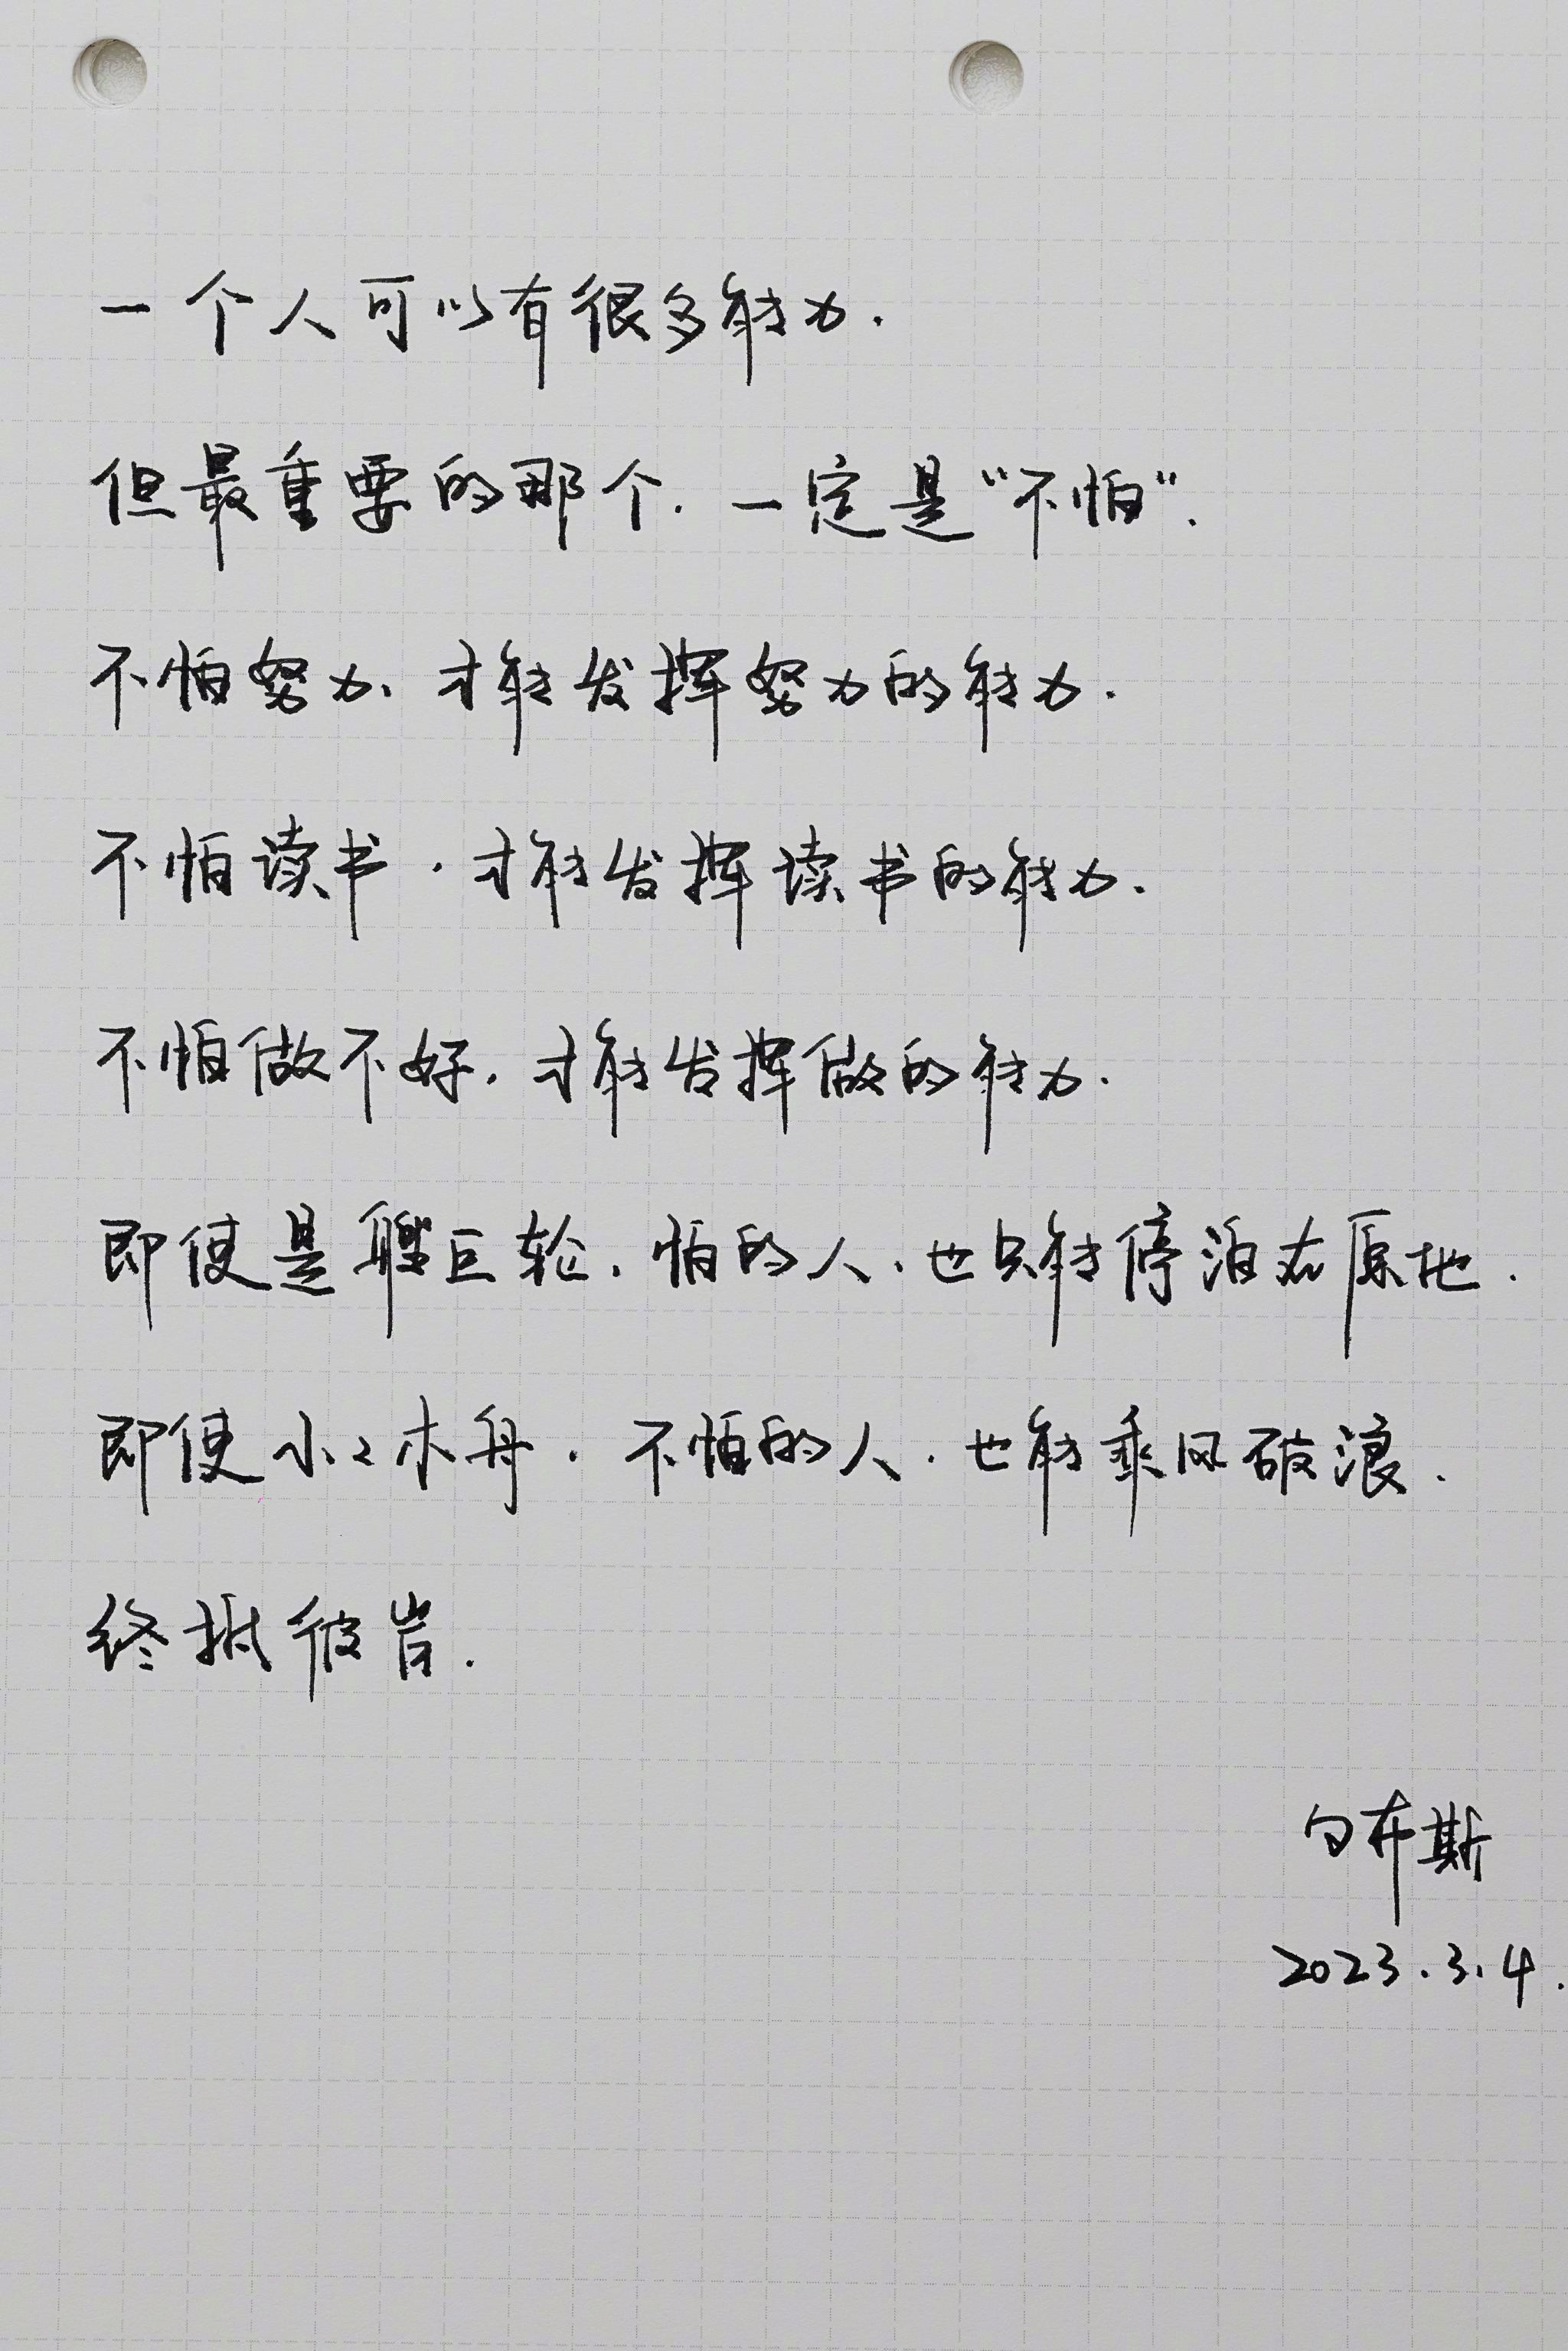 一个人可以有很多能力.
但最重要的那个.一定是“不怕”.
不怕努力、才能发挥努力的能力.
不怕读书.才能发挥读书的能力.
不怕做不好.才能发挥做的能力.
即使是艘巨轮.怕的人.也只能停泊在原地.
即使小小木舟.不怕的人.也能乘风破浪.
终抵彼岸.
白布斯
2023.3.4.